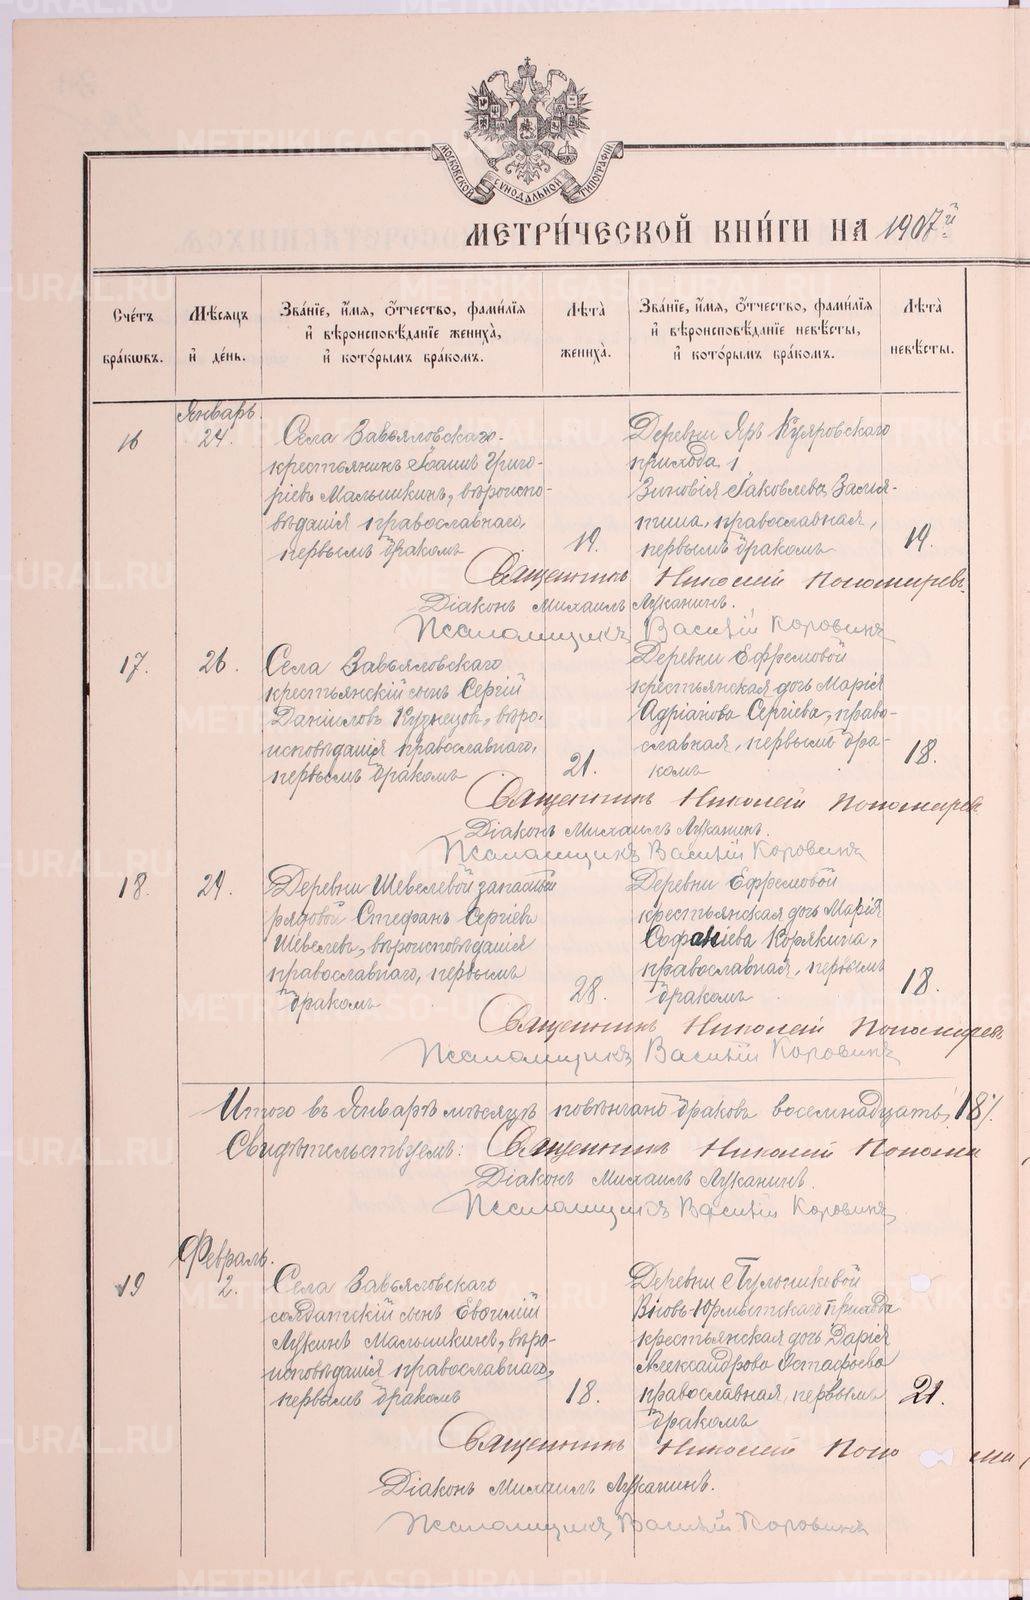 МОСКОВСКОЙ СУНОДАЛЬНОЙ ТИПОГРАФІИ
МЕТРИ́ЧЕСКОЙ КНИ́ГИ НА 1907й
Счетъ бракѡвъ.
Мѣсяцъ и день.
Званіе, имя, отчество, фамилія и вѣроисповѣданіе жениха, и которымъ бракомъ.
Лѣта жениха.
Званіе, имя, отчество, фамилія и вѣроисповѣданіе невѣсты, и которымъ бракомъ.
Лѣта невѣсты.
Январь.
16
24.
Села Завьяловскаго
крестьянинъ Іоаннъ Григо-
ріевъ Мальшкинъ, вѣроиспо-
вѣданія православнаго,
первымъ бракомъ
19.
Деревни Яръ
прихода
Зиновія Іаковлева
православная,
первымъ бракомъ
19.
Священникъ Николай Пономаревъ
Діаконъ Михаилъ Луканинъ.
Псаломщикъ Василій Коровинъ
17.
26.
Села Завьяловскаго
крестьянскій сынъ Сергій
Даніиловъ Кузнецовъ, вѣро-
исповѣданія православнаго,
первымъ бракомъ
21.
Деревни Ефремовой
крестьянская дочь Марія
Адріанова Сергіева, право-
славная, первымъ бра-
комъ
18.
Священникъ Николай Пономарев
Діаконъ Михаилъ Луканинъ.
Псаломщикъ Василій Коровинъ
18.
29.
Деревни Шевелевой запасный
рядовой Стефанъ Сергіевъ
Шевелевъ, вѣроисповѣданія
православнаго, первымъ
бракомъ
28.
Деревни Ефремовой
крестьянская дочь Марія
Софоніева Корякина,
православная, первымъ
бракомъ
18.
Священникъ Николай Пономаревъ
Псаломщикъ Василій Коровинъ
Итого въ Январѣ мѣсяцѣ повѣнчано браковъ восемнадцать, 18%
Свидѣтельствуемъ: Священникъ Николай Понома
Діаконъ Михаилъ Луканинъ.
Псаломщикъ Василій Коровинъ
Февраль.
19
2.
Села Завьяловскаго
солдатскій сынъ Евѳимій
Лукинъ Мальшкинъ, вѣро-
исповѣданія православнаго,
первымъ бракомъ
18.
Деревни
прихода
крестьянская дочь Дарія
Александрова Остафьева
православная, первымъ
бракомъ
21.
Священникъ Николай Поно ма
Діаконъ Михаилъ Луканинъ.
Псаломщикъ Василій Коровинъ
METRIKI.GASO-URAL.RU